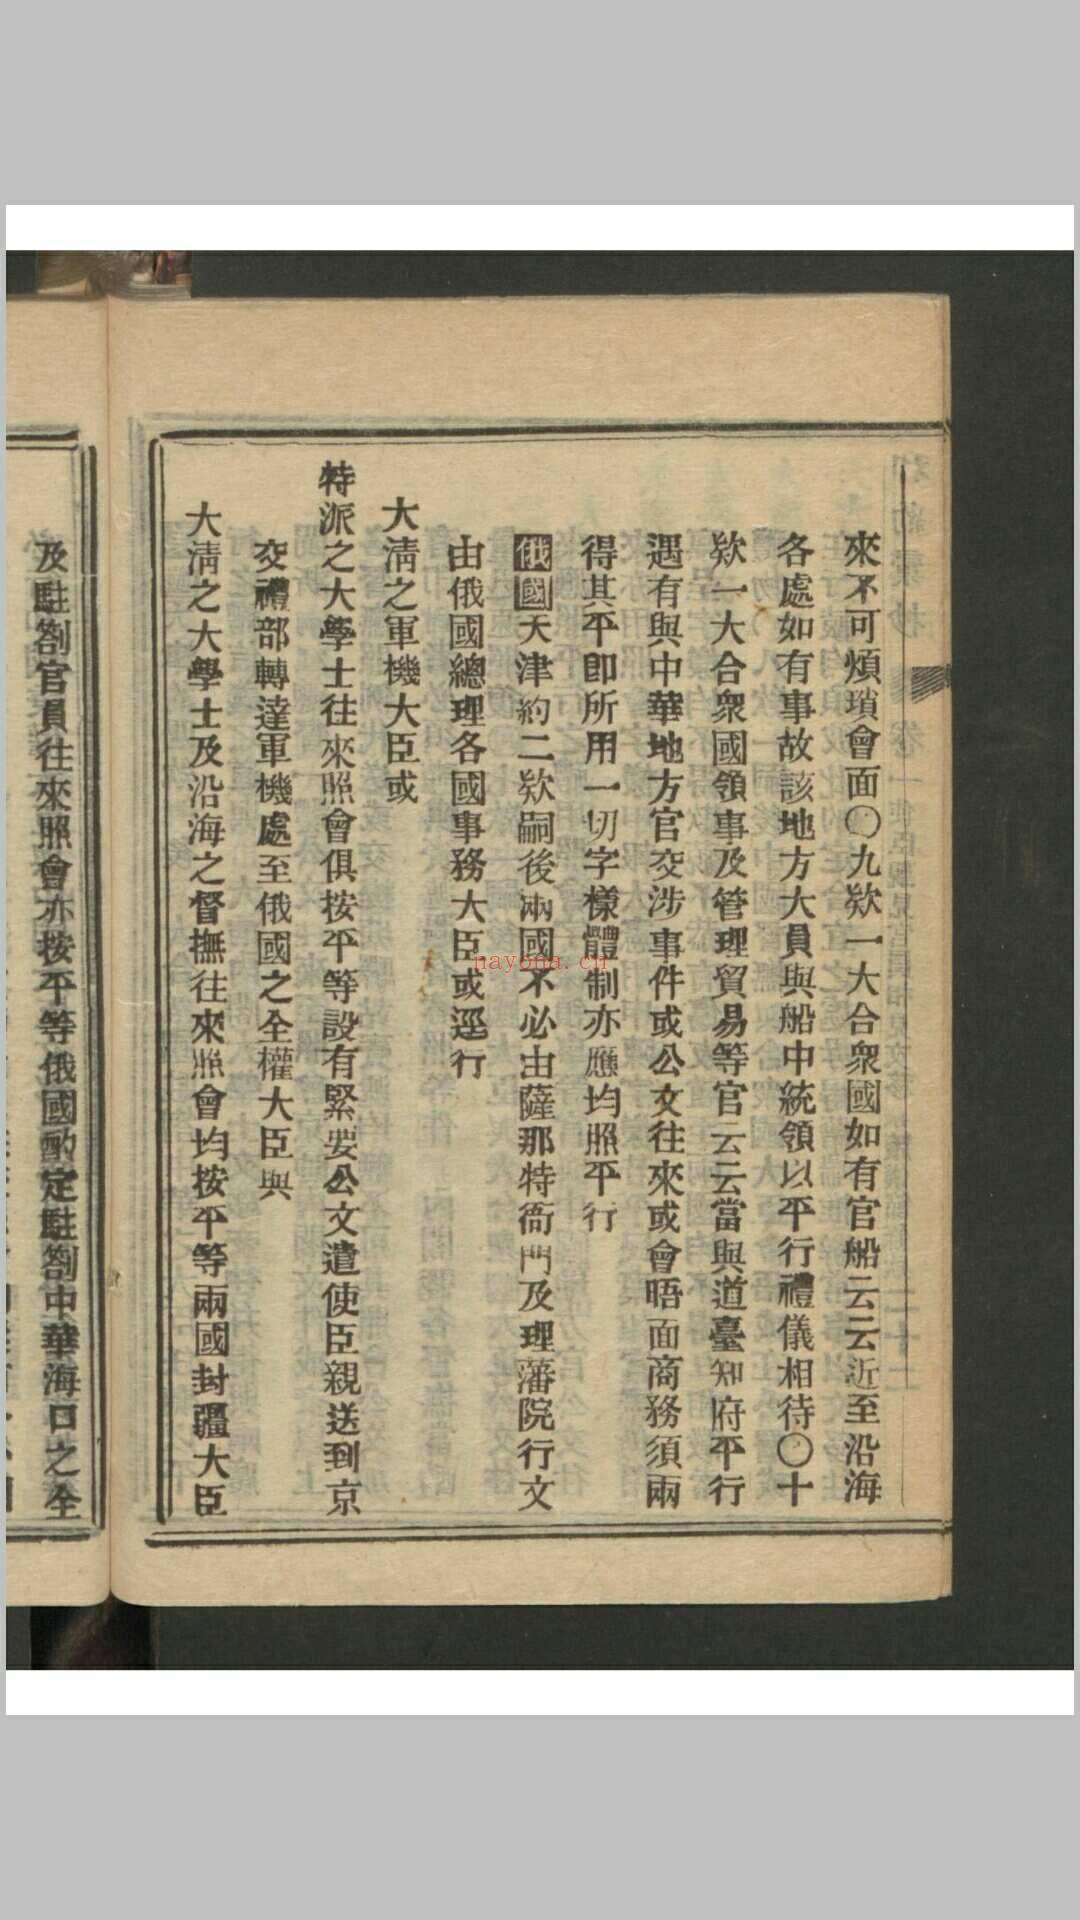 來不可煩瑣會面〇九欵一大合衆國如有官船云云近至沿海
各處如有事故該地方大員與船中統領以平行禮儀相待〇十
欵一大合衆國領事及管理貿易等官云云當與道臺知府平行
遇有與中華地方官交涉事件或公文往來或會晤面商務須兩
得其平卽所用一切字樣體制亦應均照平行
俄國天津約二欵嗣後兩國不必由薩那特衙門及理藩院行文
由俄國總理各國事務大臣或逕行
大淸之軍機大臣或
特派之大學士往來照會俱按平等設有緊要公文遣使臣親送到京
交禮部轉達軍機處至俄國之全權大臣與
大淸之大學士及沿海之督撫往來照會均按平等兩國封疆大臣
及駐劄官員往來照會亦按平等俄國酌定駐劄中華海口之全
nayona.cn